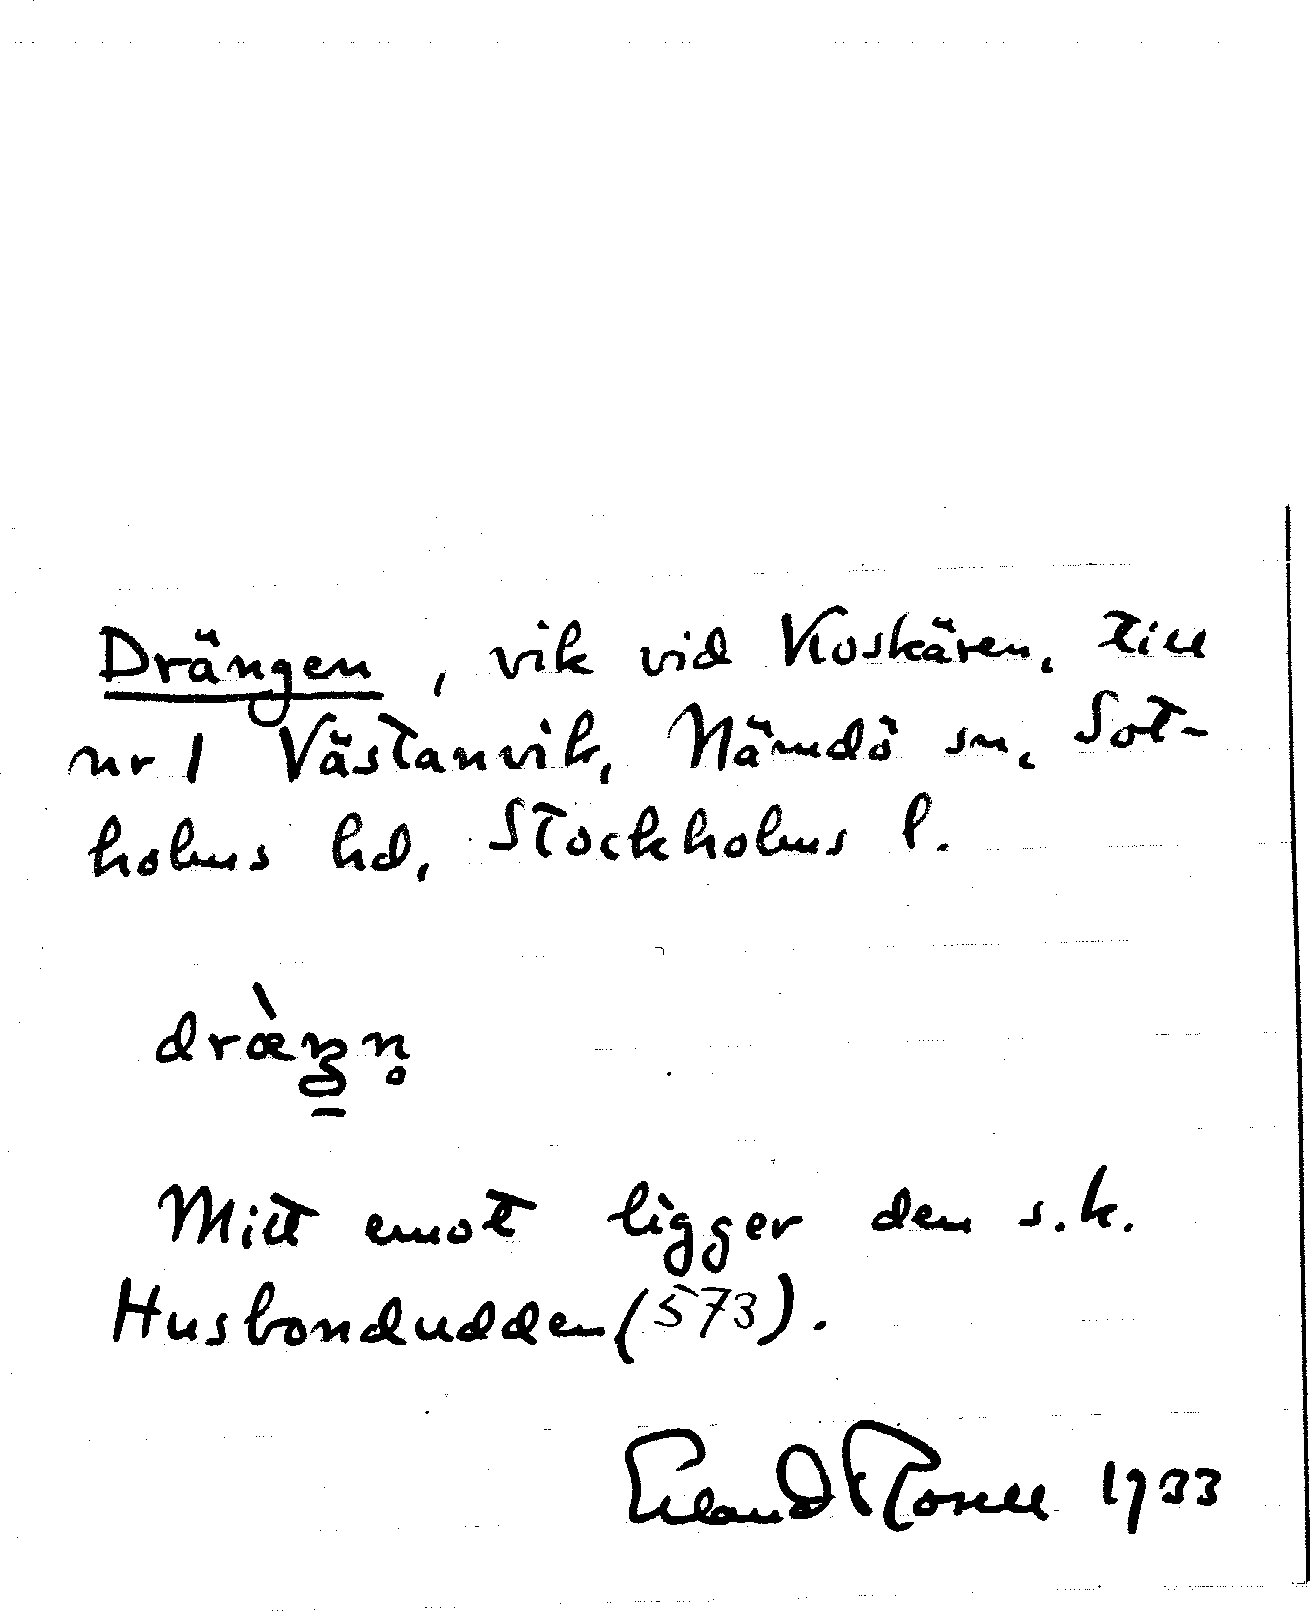 Drängen, vik vid Koskären, till
nr 1 Västanvik, Nämdö sn, Sot-
holms hd, Stockholms l.
dræ̀ŋn̥
Mitt emot ligger den s.k.
Husbondudden (573).
Erland Rosell 1933